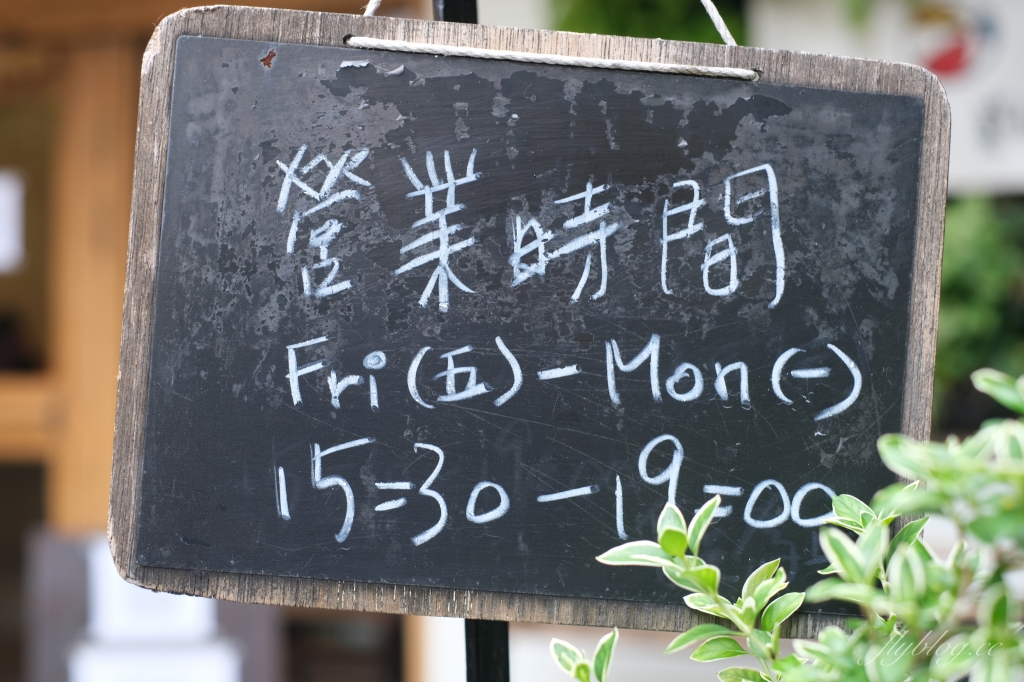 營業時間
Fri(五)-Mon(一)
15=30-19=00
flyblog.cc